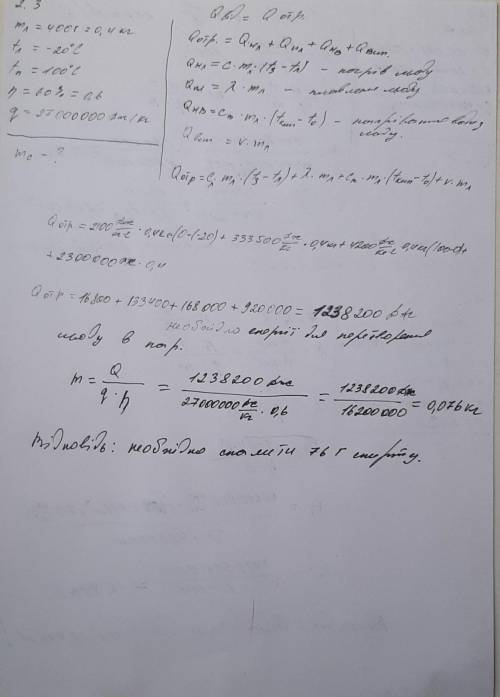 2.3
mл = 400г = 0,4 кг
tл = -20°C
tп = 100°C
η = 60% = 0,6
q = 27000000 Дж/кг
mc - ?
Qвід = Qотр.
Qотр. = Qнл + Qпл + Qнв + Qвип.
Qнл = c · mл · (t3 - tл) - нагрів льоду
Qпл = λ · mл - плавлення льоду
Qнв = cв · mл · (tкип - t0) - нагрівання води льоду.
Qвип = v · mл
Qотр = cл · mл · (t3 - tл) + λ · mл + cв · mл · (tкип - t0) + v · mл
Qотр = 2100 Дж/кг·C · 0,4кг(0-(-20)) + 333500 Дж/кг · 0,4кг + 4200 Дж/кг·C 0,4кг(100-0)+
+ 2300000 Дж · 0,4
Qотр = 16800 + 133400 + 168000 + 920000 = 1238200 Дж
необхідно енергії для перетворення
льоду в пар.
m = Q / q · η = 1238200 Дж / 27000000 Дж/кг · 0,6 = 1238200 Дж / 16200000 = 0,076 кг
Відповідь: необхідно спалити 76 г спирту.